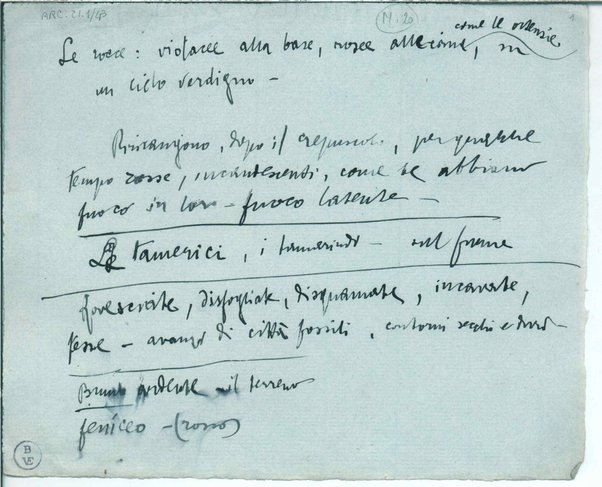 ARC: 21.1/
N. 20
1
come le ortensie
Le rocce: violacee alla base, rosee alle cime, in
un cielo verdigno –
Rimangono, dopo il crepuscolo, per qualche
tempo rosse, incandescenti, come se abbiano
fuoco in loro – fuoco latente –
Le tamerici, i tamarindi – sul fiume
disfogliate, disquamate, incavate,
fesse – avanzi di città fossili, contorni secchi e duri –
Bruno ardente il terreno
feniceo – (rosso)
B
VE